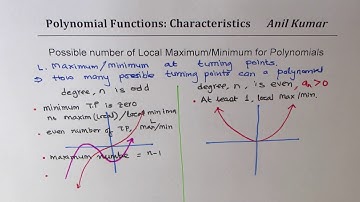 Polynomial Functions: Characteristics Anil Kumar
Possible number of Local Maximum/Minimum for Polynomials
L. Maximum/minimum at turning points.
How many possible turning points can a polynomial
degree, n is odd
degree, n, is even, an>0
• minimum T.P is zero
no maxim(local)/local minima
• At least 1, local max/min.
• even number of T.P, L max/min
• maximum number = n-1